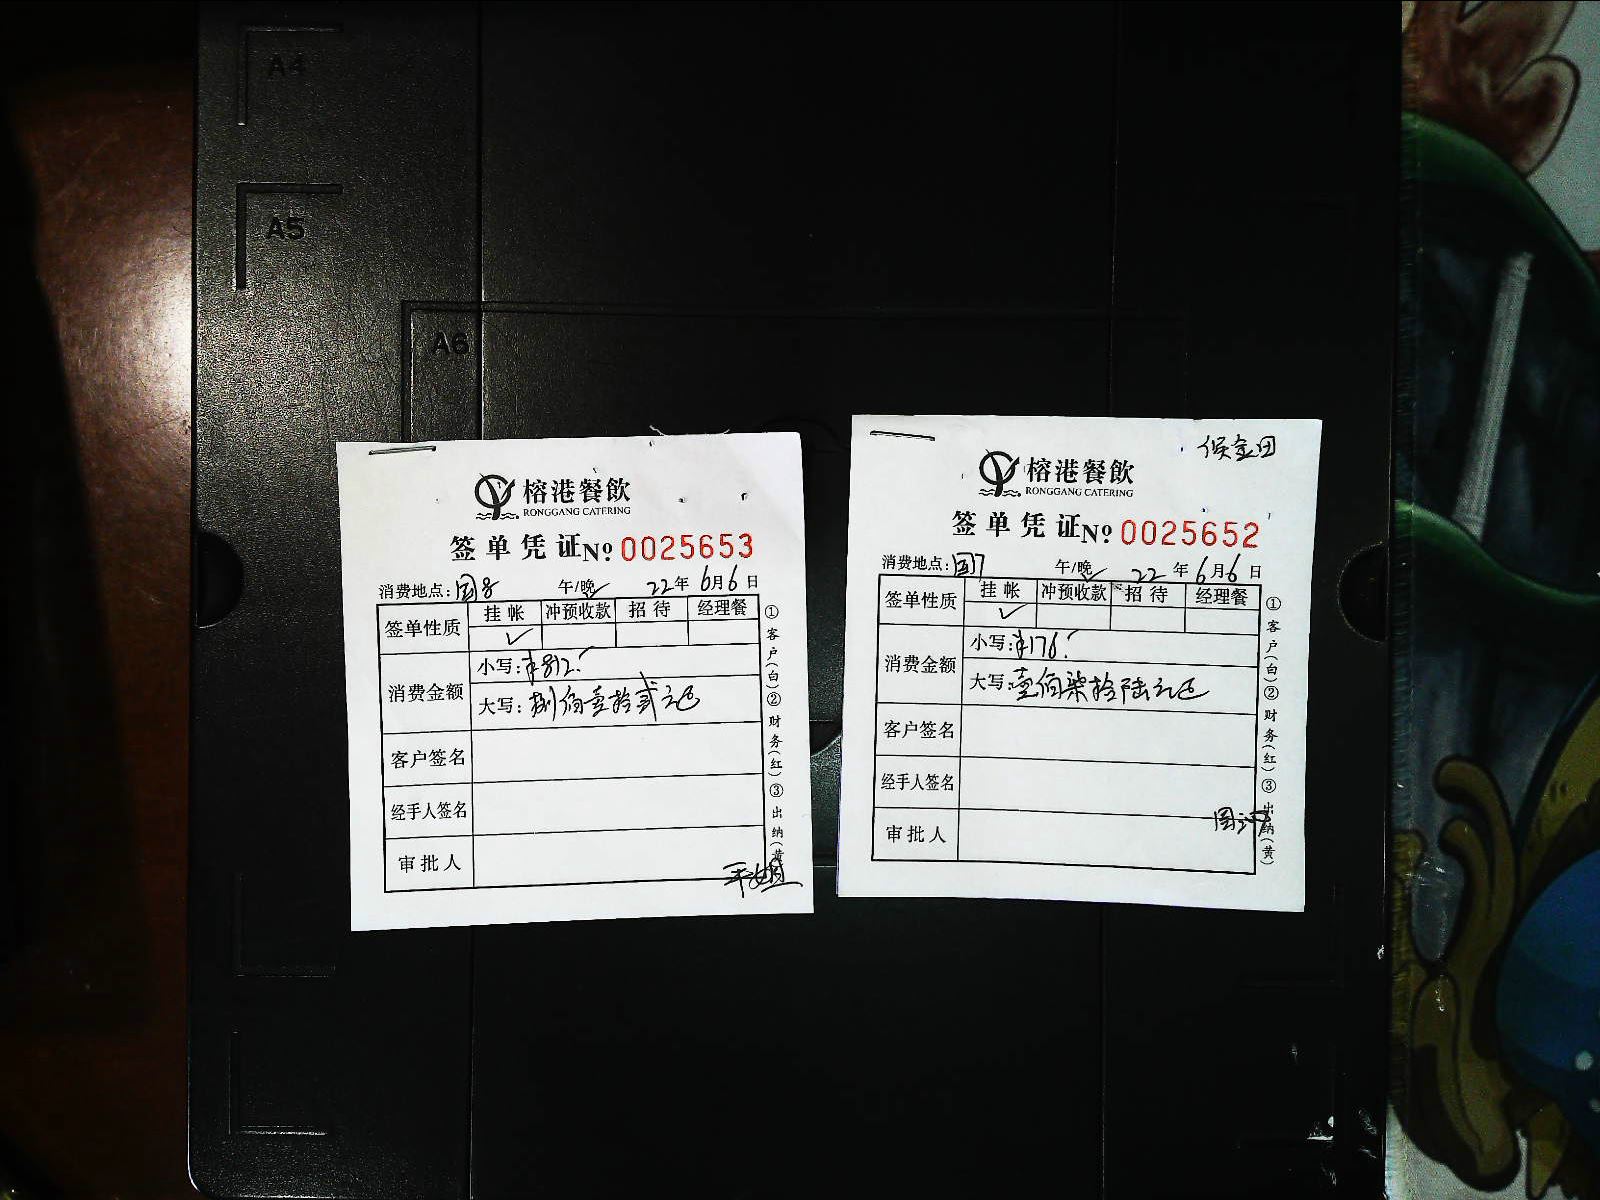 A4
A5
A6
榕港餐飲
RONGGANG CATERING
签单凭证 № 0025653
消费地点: 国8 午/晚 22年6月6日
签单性质 挂帐 冲预收款 招待 经理餐
✓
消费金额 小写: ¥812.
大写: 捌佰壹拾贰元
客户签名
经手人签名
审批人
①客户(白)②财务(红)③出纳(黄)
榕港餐飲
RONGGANG CATERING
签单凭证 № 0025652
消费地点: 国7 午/晚 22年6月6日
签单性质 挂帐 冲预收款 招待 经理餐
✓
消费金额 小写: ¥176.
大写: 壹佰柒拾陆元
客户签名
经手人签名
审批人
①客户(白)②财务(红)③出纳(黄)